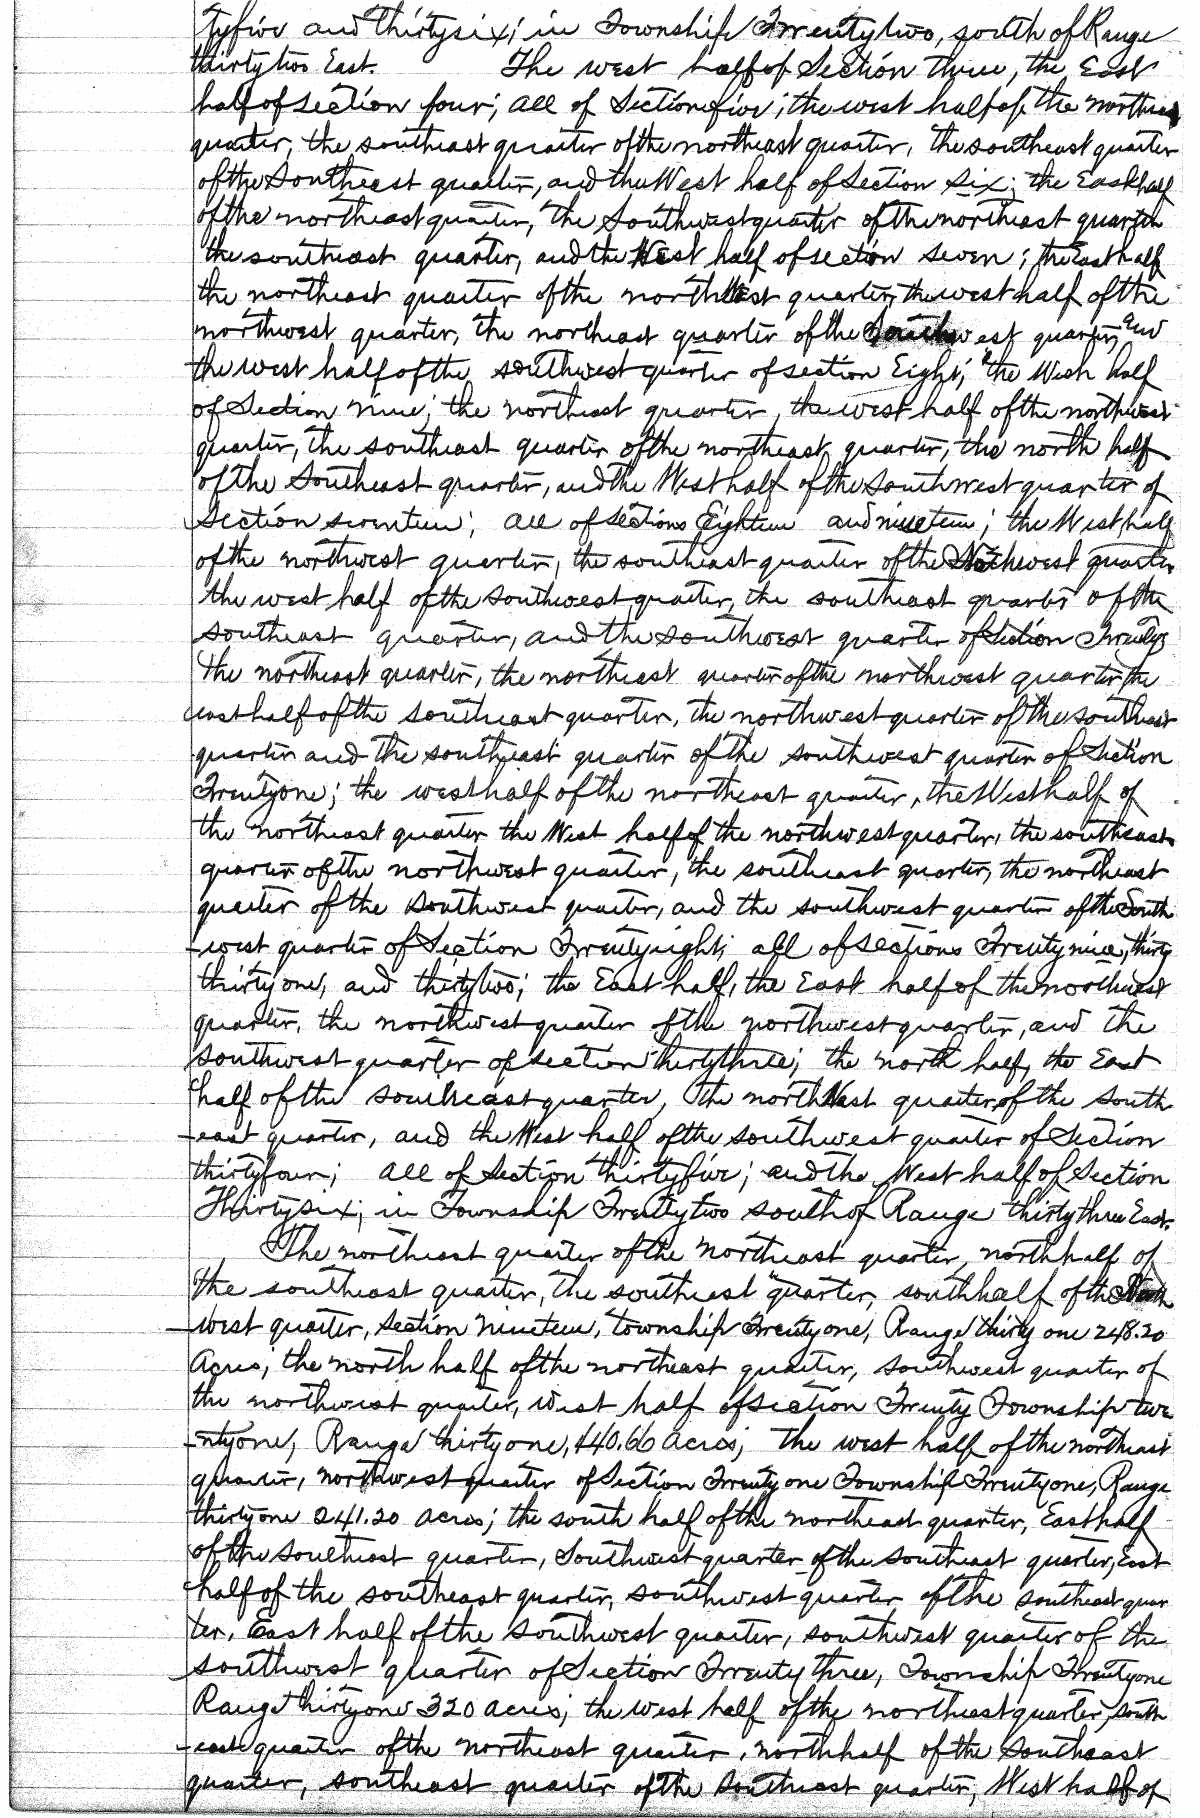 tyfive and thirtysix; in Township Twentytwo, south of Range
thirtytwo East. The west half of Section three, the East
half of section four; all of Section five; the west half of the northeast
quarter, the southeast quarter of the northeast quarter, the southeast quarter
of the Southeast quarter, and the West half of Section six; the East half
of the northeast quarter, the Southwest quarter of the northeast quarter
the southeast quarter, and the West half of section seven; the East half
the northeast quarter of the northWest quarter, the west half of the
northwest quarter, the northeast quarter of the Southwest quarter, and
the west half of the southwest quarter of section Eight; the West half
of Section nine; the northeast quarter, the west half of the northwest
quarter, the southeast quarter of the northeast quarter, the north half
of the Southeast quarter, and the West half of the Southwest quarter of
Section seventeen; all of sections Eighteen and nineteen; the West half
of the northwest quarter, the southeast quarter of the Northwest quarter
the west half of the southwest quarter, the southeast quarter of the
southeast quarter, and the southwest quarter of Section Twenty;
the northeast quarter, the northeast quarter of the northwest quarter, the
east half of the southeast quarter, the northwest quarter of the southeast
quarter and the southeast quarter of the southwest quarter of Section
Twentyone; the west half of the northeast quarter, the West half of
the northeast quarter the West half of the northwest quarter, the southeast
quarter of the northwest quarter, the southeast quarter, the northeast
quarter of the Southwest quarter, and the southwest quarter of the South
-west quarter of Section Twentyeight; all of sections Twentynine, thirty
thirtyone, and thirtytwo; the East half, the East half of the northwest
quarter, the northwest quarter of the northwest quarter, and the
southwest quarter of section thirtythree; the north half, the East
half of the southeast quarter, the northWest quarter of the south
-east quarter, and the West half of the southwest quarter of Section
thirtyfour; all of Section thirtyfive; and the West half of Section
Thirtysix; in Township Twentytwo south of Range thirtythree East.
The northeast quarter of the northeast quarter, north half of
the southeast quarter, the southeast quarter, south half of the
west quarter, Section nineteen, township Twentyone, Range thirty one 248.20
Acres; the north half of the northeast quarter, southwest quarter of
the northwest quarter, west half of section Twenty Township twe
-ntyone, Range thirtyone, 440.66 acres; the west half of the northeast
quarter, northwest quarter of Section Twentyone Township Twentyone, Range
thirtyone 241.20 acres; the south half of the northeast quarter, East half
of the southeast quarter, Southwest quarter of the southeast quarter, East
half of the southeast quarter, southwest quarter of the southeast quar
ter, East half of the southwest quarter, southwest quarter of the
southwest quarter of Section Twenty three, Township Twentyone
Range thirtyone 320 acres; the west half of the northeast quarter, south
-east quarter of the northeast quarter, north half of the Southeast
quarter, southeast quarter of the Southeast quarter, West half of